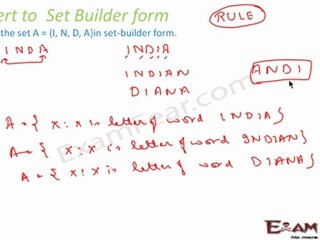 ert to Set Builder form
RULE
the set A = {I, N, D, A}in set-builder form.
I N D A
I N D I A
I N D I A N
A N D I
D I A N A
A = { x : x is letter of word I N D I A }
A = { x : x is letter of word I N D I A N }
A = { x : x is letter of word D I A N A }
ExamFear.com
EXAM
No more